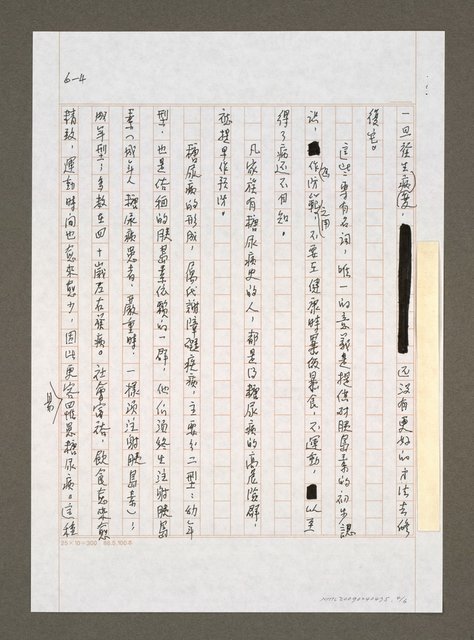 6-4
一旦發生病變，還沒有更好的方法去修
復它。
這些專有名詞，唯一的意義是提供對胰島素的初步認
識，作防範，不要在健康時暴飲暴食，不運動，以至
得了病還不自知。
凡家族有糖尿病史的人，都是得糖尿病的高危險群，
應提早作預防。
糖尿病的形成，屬代謝障礙疾病，主要分二型：幼年
型，也是依賴的胰島素依賴的一群，他們須終生注射胰島
素（成年人糖尿病患者，嚴重時，一樣須注射胰島素）；
成年型；多數在四十歲左右發病。社會富裕，飲食愈來愈
精致，運動時間也愈來愈少，因此更容易罹患糖尿病。這種
25×10=300 86.5.100本